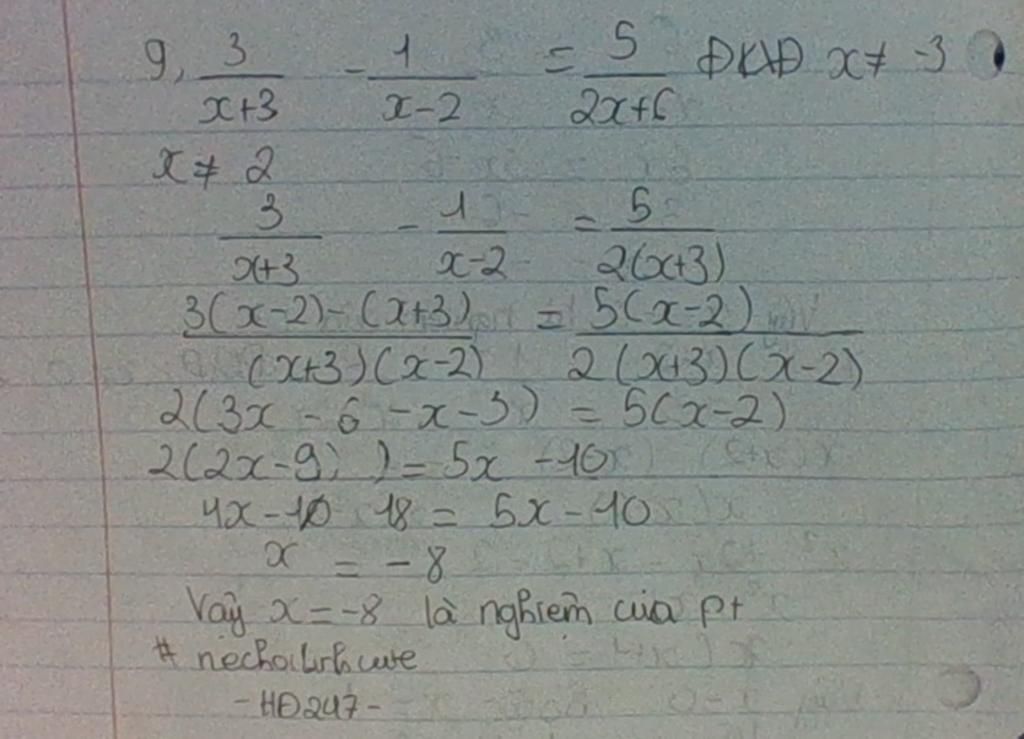 9, 3/(x+3) - 1/(x-2) = 5/(2x+6) ĐKXĐ x ≠ -3
x ≠ 2
3/(x+3) - 1/(x-2) = 5/(2(x+3))
(3(x-2)-(x+3))/((x+3)(x-2)) = (5(x-2))/(2(x+3)(x-2))
2(3x - 6 - x - 3) = 5(x-2)
2(2x-9) = 5x - 10
4x - 18 = 5x - 10
x = -8
Vậy x = -8 là nghiệm của pt
- HĐ247 -